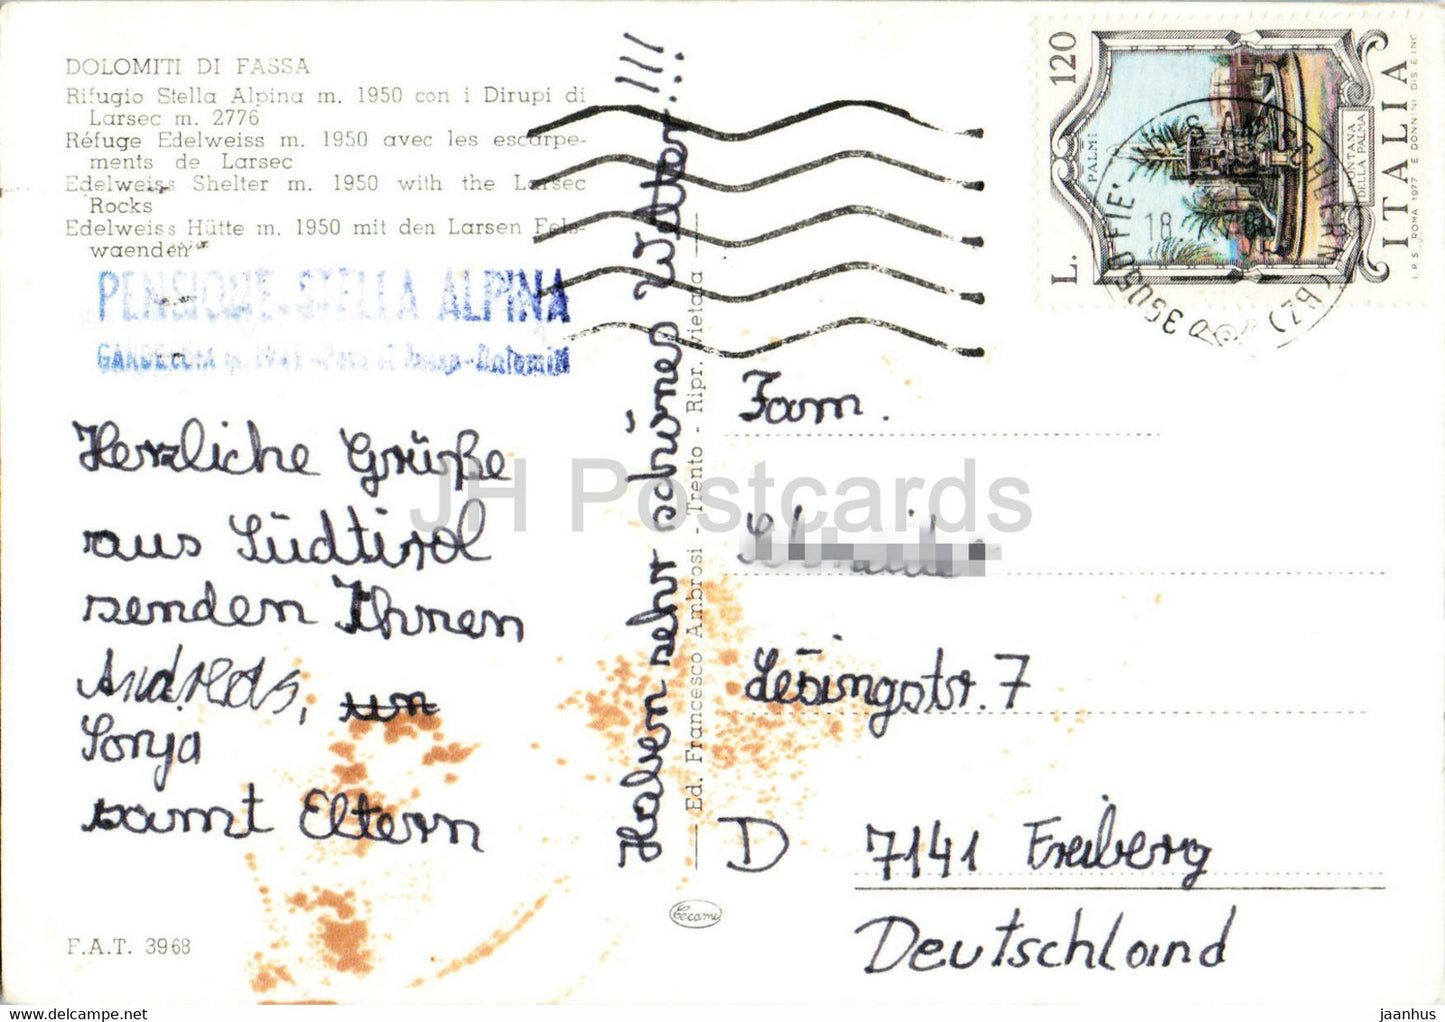 DOLOMITI DI FASSA
Rifugio Stella Alpina m. 1950 con i Dirupi di
Larsec m. 2776
Réfuge Edelweiss m. 1950 avec les escarpe-
ments de Larsec
Edelweiss Shelter m. 1950 with the Larsec
Rocks
Edelweiss Hütte m. 1950 mit den Larsen Fels-
waenden
PENSIONE-STELLA ALPINA
GARDECCIA m.
Herzliche Grüße
aus Südtirol
senden Ihnen
Andreas,
Sonja
samt Eltern
F.A.T. 3968
Haben sehr schönes Wetter!!!
Ed. Francesco Ambrosi - Trento - Ripr. vietata
L. 120
PALMI
FONTANA
DELLA PALMA
ITALIA
I.P.S. ROMA 1977 E DONNINI DIS E INC
39050 FIE'
18
(BZ)
Fam.
Lessingstr. 7
D 7141 Freiberg
Deutschland
JH Postcards
jaanhus